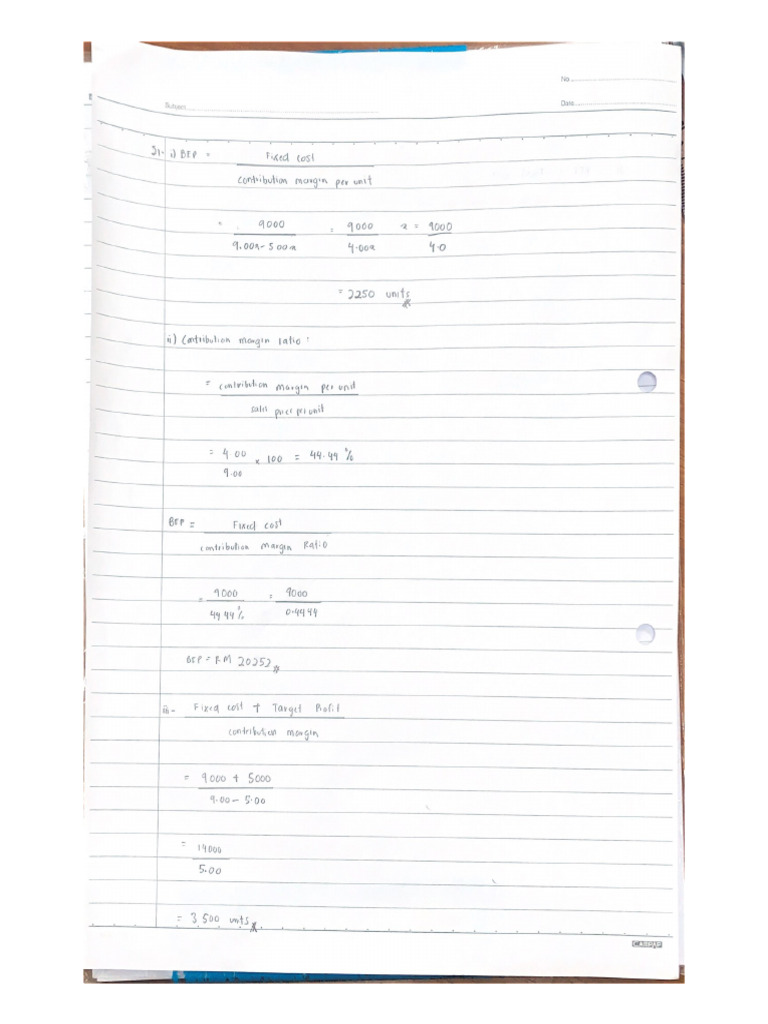 No.
Subject
Date
21- i) BEP = Fixed cost
contribution margin per unit
= 9000 = 9000 x = 9000
9.00x - 5.00x 4.00x 4.0
= 2250 units
ii) Contribution margin ratio :
= contribution margin per unit
sales price per unit
= 4.00 x 100 = 44.44 %
9.00
BEP = Fixed cost
contribution margin Ratio
= 9000 = 9000
44.44% 0.4444
BEP = RM 20252
iii- Fixed cost + Target Profit
contribution margin
= 9000 + 5000
9.00 - 5.00
= 14000
5.00
= 3 500 units
CAMPAP